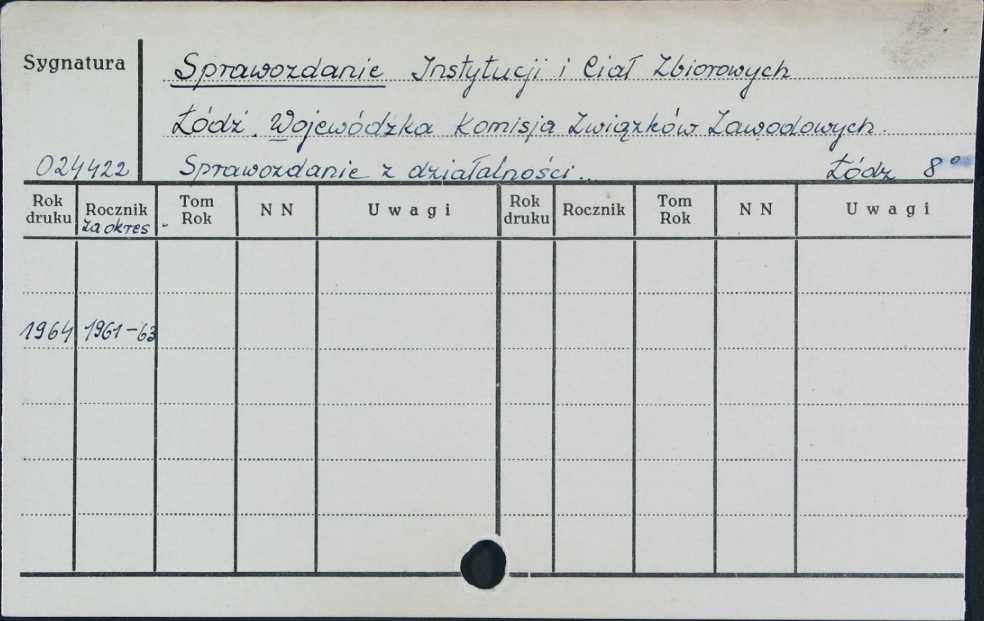 Sygnatura
Sprawozdanie Instytucji i Ciał Zbiorowych
Łódź. Wojewódzka Komisja Związków Zawodowych.
024422 Sprawozdanie z działalności... Łódź 8°
Rok druku Rocznik za okres Tom Rok N N Uwagi Rok druku Rocznik Tom Rok N N Uwagi
1964 1961-63